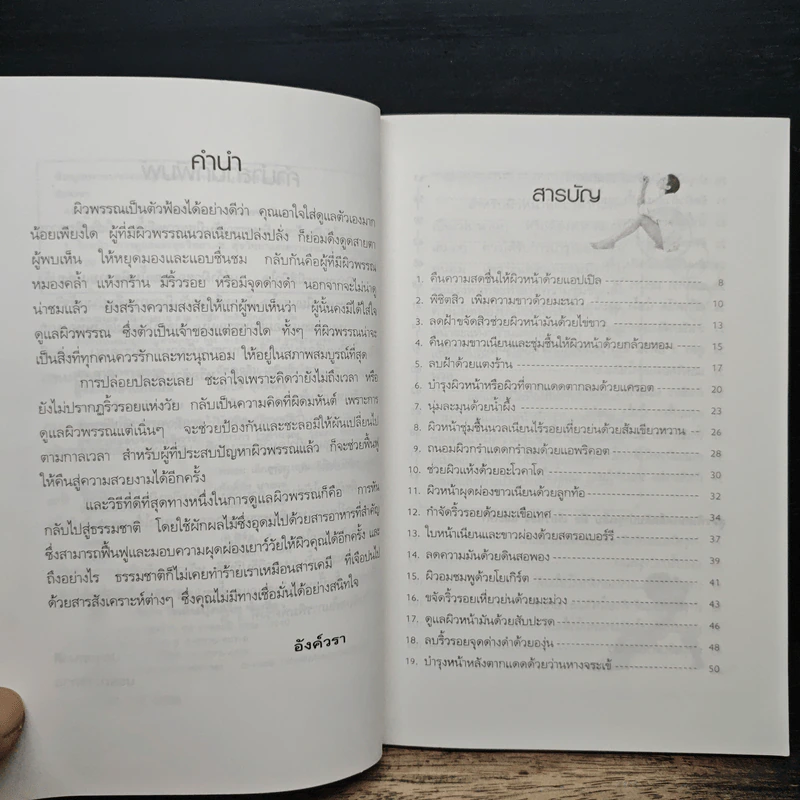 คำนำ
ผิวพรรณเป็นตัวฟ้องได้อย่างดีว่า คุณเอาใจใส่ดูแลตัวเองมาก
น้อยเพียงใด ผู้ที่มีผิวพรรณนวลเนียนเปล่งปลั่ง ก็ย่อมดึงดูดสายตา
ผู้พบเห็น ให้หยุดมองและแอบชื่นชม กลับกันคือผู้ที่มีผิวพรรณ
หมองคล้ำ แห้งกร้าน มีริ้วรอย หรือมีจุดด่างดำ นอกจากจะไม่น่าดู
น่าชมแล้ว ยังสร้างความสงสัยให้แก่ผู้พบเห็นว่า ผู้นั้นคงมิได้ใส่ใจ
ดูแลผิวพรรณ ซึ่งตัวเป็นเจ้าของแต่อย่างใด ทั้งๆ ที่ผิวพรรณน่าจะ
เป็นสิ่งที่ทุกคนควรรักและทะนุถนอม ให้อยู่ในสภาพสมบูรณ์ที่สุด
การปล่อยปละละเลย ชะล่าใจเพราะคิดว่ายังไม่ถึงเวลา หรือ
ยังไม่ปรากฏริ้วรอยแห่งวัย กลับเป็นความคิดที่ผิดมหันต์ เพราะการ
ดูแลผิวพรรณแต่เนิ่นๆ จะช่วยป้องกันและชะลอมิให้ผันเปลี่ยนไป
ตามกาลเวลา สำหรับผู้ที่ประสบปัญหาผิวพรรณแล้ว ก็จะช่วยฟื้นฟู
ให้คืนสู่ความสวยงามได้อีกครั้ง
และวิธีที่ดีที่สุดทางหนึ่งในการดูแลผิวพรรณก็คือ การหัน
กลับไปสู่ธรรมชาติ โดยใช้ผักผลไม้ซึ่งอุดมไปด้วยสารอาหารที่สำคัญ
ซึ่งสามารถฟื้นฟูและมอบความผุดผ่องเยาว์วัยให้ผิวคุณได้อีกครั้ง และ
ถึงอย่างไร ธรรมชาติก็ไม่เคยทำร้ายเราเหมือนสารเคมี ที่เจือปนไป
ด้วยสารสังเคราะห์ต่างๆ ซึ่งคุณไม่มีทางเชื่อมั่นได้อย่างสนิทใจ
อังค์วรา
สารบัญ
1. คืนความสดชื่นให้ผิวหน้าด้วยแอปเปิล 8
2. พิชิตสิว เพิ่มความขาวด้วยมะนาว 10
3. ลดฝ้าขจัดสิวช่วยผิวหน้ามันด้วยไข่ขาว 13
4. คืนความขาวเนียนและชุ่มชื้นให้ผิวหน้าด้วยกล้วยหอม 15
5. ลบฝ้าด้วยแตงร้าน 17
6. บำรุงผิวหน้าหรือผิวที่ตากแดดตากลมด้วยแครอต 20
7. นุ่มละมุนด้วยน้ำผึ้ง 23
8. ผิวหน้าชุ่มชื้นนวลเนียนไร้รอยเหี่ยวย่นด้วยส้มเขียวหวาน 26
9. ถนอมผิวกร้าแดดกร้าลมด้วยแอพริคอต 28
10. ช่วยผิวแห้งด้วยอะโวคาโด 30
11. ผิวหน้าผุดผ่องขาวเนียนด้วยลูกท้อ 32
12. กำจัดริ้วรอยด้วยมะเขือเทศ 34
13. ใบหน้าเนียนและขาวผ่องด้วยสตรอเบอร์รี 37
14. ลดความมันด้วยดินสอพอง 39
15. ผิวอมชมพูด้วยโยเกิร์ต 41
16. ขจัดริ้วรอยเหี่ยวย่นด้วยมะม่วง 43
17. ดูแลผิวหน้ามันด้วยสับปะรด 46
18. ลบริ้วรอยจุดด่างดำด้วยองุ่น 48
19. บำรุงหน้าหลังตากแดดด้วยว่านหางจระเข้ 50